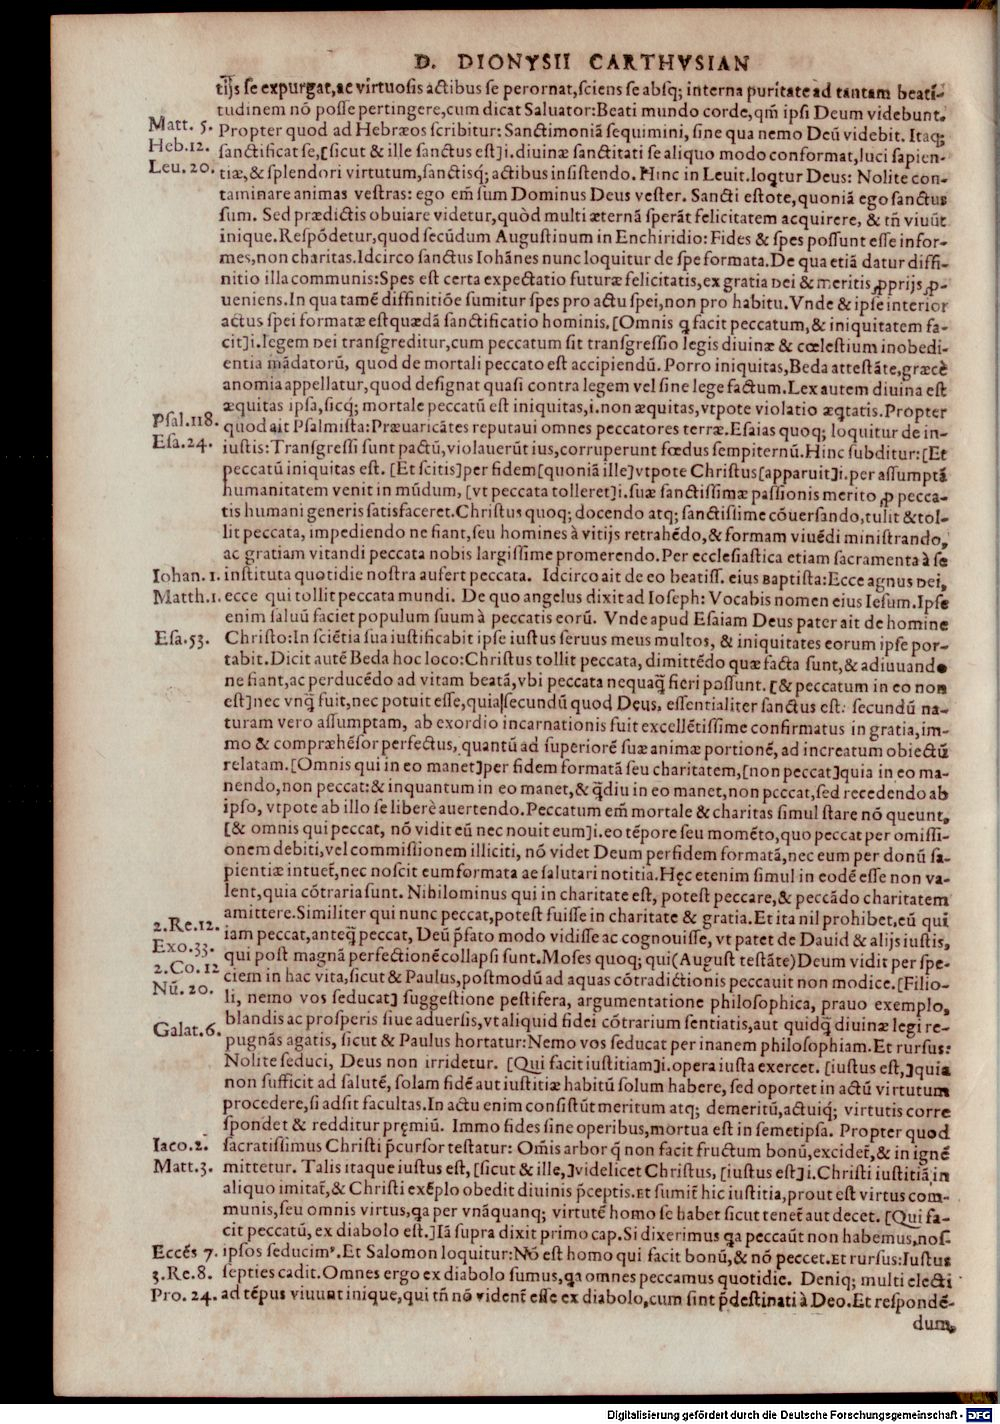 D. DIONYSII CARTHVSIAN
tijs se expurgat,ac virtuosis actibus se perornat,sciens se absq; interna puritate ad tantam beati-
tudinem nō posse pertingere,cum dicat Saluator:Beati mundo corde,qm̄ ipsi Deum videbunt.
Matt. 5. Propter quod ad Hebræos scribitur: Sanctimoniā sequimini, sine qua nemo Deū videbit. Itaq;
Heb.12. sanctificat se,[sicut & ille sanctus est]i.diuinæ sanctitati se aliquo modo conformat,luci sapien-
Leu. 20. tiæ,& splendori virtutum,sanctisq; actibus insistendo. Hinc in Leuit.loq̄tur Deus: Nolite con-
taminare animas vestras: ego em̄ sum Dominus Deus vester. Sancti estote,quoniā ego sanctus
sum. Sed prædictis obuiare videtur,quòd multi æternā sperāt felicitatem acquirere, & tn̄ viuūt
inique.Respōdetur,quod secūdum Augustinum in Enchiridio: Fides & spes possunt esse infor-
mes,non charitas.Idcirco sanctus Iohānes nunc loquitur de spe formata.De qua etiā datur diffi-
nitio illa communis:Spes est certa expectatio futuræ felicitatis,ex gratia Dei & meritis ꝓprijs ꝓ-
ueniens.In qua tamē diffinitiōe sumitur spes pro actu spei,non pro habitu.Vnde & ipse interior
actus spei formatæ est quædā sanctificatio hominis. [Omnis q facit peccatum,& iniquitatem fa-
cit]i.legem Dei transgreditur,cum peccatum sit transgressio legis diuinæ & cœlestium inobedi-
entia mādatorū, quod de mortali peccato est accipiendū. Porro iniquitas,Beda attestāte,græcè
anomia appellatur,quod designat quasi contra legem vel sine lege factum.Lex autem diuina est
æquitas ipsa,sicq; mortale peccatū est iniquitas,i.non æquitas,vtpote violatio æq̄tatis.Propter
Psal.118. quod ait Psalmista:Præuaricātes reputaui omnes peccatores terræ.Esaias quoq; loquitur de in-
Esa.24. iustis: Transgressi sunt pactū,violauerūt ius,corruperunt fœdus sempiternū.Hinc subditur:[Et
peccatū iniquitas est. [Et scitis]per fidem[quoniā ille]vtpote Christus[apparuit]i.per assumptā
humanitatem venit in mūdum, [vt peccata tolleret]i.suæ sanctissimæ passionis merito ꝓ pecca-
tis humani generis satisfaceret.Christus quoq; docendo atq; sanctissime cōuersando,tulit & tol-
lit peccata, impediendo ne fiant,seu homines à vitijs retrahēdo,& formam viuēdi ministrando,
ac gratiam vitandi peccata nobis largissime promerendo.Per ecclesiastica etiam sacramenta à se
Iohan. 1. instituta quotidie nostra aufert peccata. Idcirco ait de eo beatiss. eius Baptista:Ecce agnus Dei,
Matth.1. ecce qui tollit peccata mundi. De quo angelus dixit ad Ioseph: Vocabis nomen eius Iesum.Ipse
enim saluū faciet populum suum à peccatis eorū. Vnde apud Esaiam Deus pater ait de homine
Esa.53. Christo:In sciētia sua iustificabit ipse iustus seruus meus multos, & iniquitates eorum ipse por-
tabit.Dicit autē Beda hoc loco:Christus tollit peccata, dimittēdo quæ facta sunt,& adiuuando
ne fiant,ac perducēdo ad vitam beatā,vbi peccata nequaq̄ fieri possunt. [& peccatum in eo non
est]nec vnq̄ fuit,nec potuit esse,quia secundū quod Deus, essentialiter sanctus est: secundū na-
turam vero assumptam, ab exordio incarnationis fuit excellētissime confirmatus in gratia,im-
mo & compræhēsor perfectus, quantū ad superiorē suæ animæ portionē, ad increatum obiectū
relatam.[Omnis qui in eo manet]per fidem formatā seu charitatem,[non peccat]quia in eo ma-
nendo,non peccat:& inquantum in eo manet,& q̄diu in eo manet,non peccat,sed recedendo ab
ipso, vtpote ab illo se liberè auertendo.Peccatum em̄ mortale & charitas simul stare nō queunt.
[& omnis qui peccat, nō vidit eū nec nouit eum]i.eo tēpore seu momēto,quo peccat per omissi-
onem debiti,vel commissionem illiciti, nō videt Deum per fidem formatā,nec eum per donū sa-
pientiæ intuet̄,nec noscit eum formata ac salutari notitia.Hęc etenim simul in eodē esse non va-
lent,quia cōtraria sunt. Nihilominus qui in charitate est, potest peccare,& peccādo charitatem
amittere.Similiter qui nunc peccat,potest fuisse in charitate & gratia.Et ita nil prohibet,eū qui
2.Re.12. iam peccat,anteq̄ peccat, Deū p̄fato modo vidisse ac cognouisse, vt patet de Dauid & alijs iustis,
Exo.33. qui post magnā perfectionē collapsi sunt.Moses quoq; qui(August testāte)Deum vidit per spe-
2.Co.12 ciem in hac vita,sicut & Paulus,postmodū ad aquas cōtradictionis peccauit non modice.[Filio-
Nū. 20. li, nemo vos seducat] suggestione pestifera, argumentatione philosophica, prauo exemplo,
blandis ac prosperis siue aduersis,vt aliquid fidei cōtrarium sentiatis,aut quidq̄ diuinæ legi re-
Galat.6. pugnās agatis, sicut & Paulus hortatur:Nemo vos seducat per inanem philosophiam.Et rursus:
Nolite seduci, Deus non irridetur. [Qui facit iustitiam]i.opera iusta exercet. [iustus est,]quia
non sufficit ad salutē, solam fidē aut iustitiæ habitū solum habere, sed oportet in actū virtutum
procedere,si adsit facultas.In actu enim consistūt meritum atq; demeritū,actuiq; virtutis corre
spondet & redditur pręmiū. Immo fides sine operibus,mortua est in semetipsa. Propter quod
Iaco.2. sacratissimus Christi p̄cursor testatur: Om̄is arbor q̄ non facit fructum bonū,excidet̄,& in ignē
Matt.3. mittetur. Talis itaque iustus est, [sicut & ille,]videlicet Christus, [iustus est]i.Christi iustitiā in
aliquo imitat̄,& Christi exēplo obedit diuinis p̄ceptis.Et sumit̄ hic iustitia,prout est virtus com-
munis,seu omnis virtus,q̄a per vnāquanq; virtutē homo se habet sicut tenet̄ aut decet. [Qui fa-
cit peccatū, ex diabolo est.]Iā supra dixit primo cap.Si dixerimus q̄a peccaūt non habemus,nos-
Eccēs 7. ipsos seducimꝰ.Et Salomon loquitur:Nō est homo qui facit bonū,& nō peccet.Et rursus:Iustus
3.Re.8. septies cadit.Omnes ergo ex diabolo sumus,q̄a omnes peccamus quotidie. Deniq; multi electi
Pro. 24. ad tēpus viuunt inique,qui tn̄ nō vident̄ esse ex diabolo,cum sint p̄destinati à Deo.Et respondē-
dum,
Digitalisierung gefördert durch die Deutsche Forschungsgemeinschaft - DFG